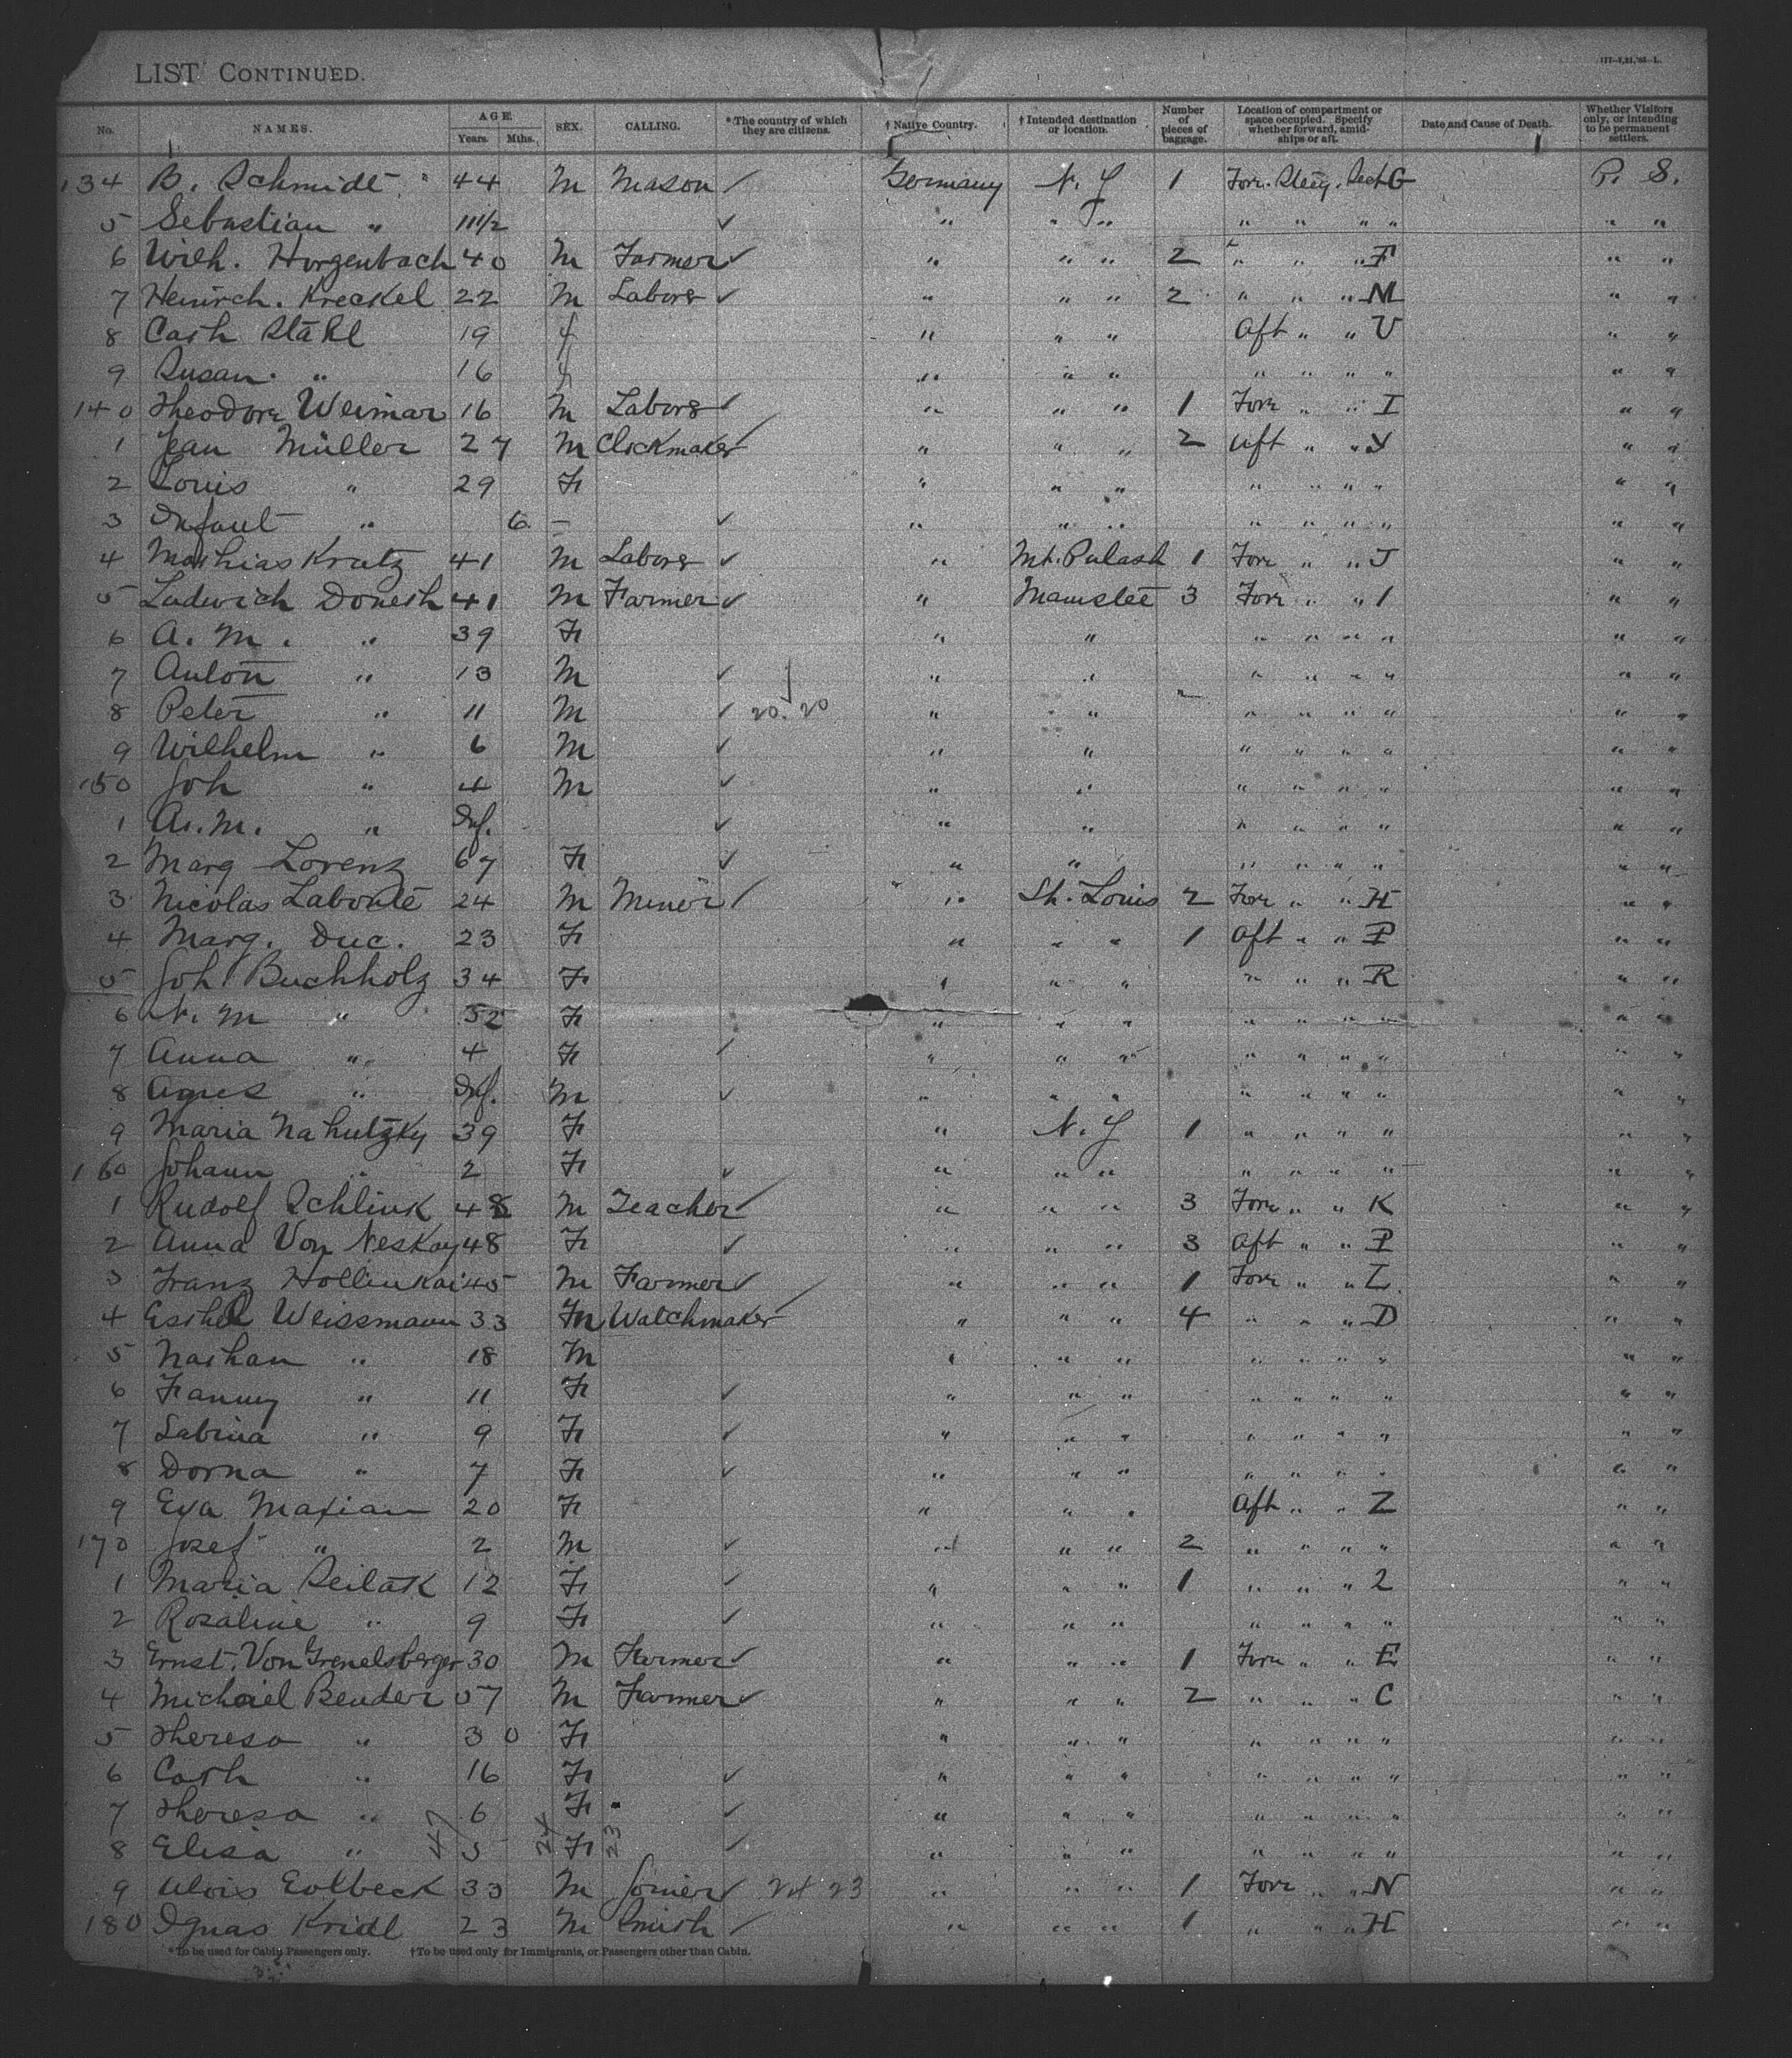 LIST CONTINUED.
No. NAMES. AGE. Years. Mths. SEX. CALLING. *The country of which they are citizens. †Native Country. †Intended destination or location. Number of pieces of baggage. Location of compartment or space occupied. Specify whether forward, amidships or aft. Date and Cause of Death. Whether Visitors only, or intending to be permanent settlers.
134 B. Schmidt 44 M Mason ✓ Germany N. Y 1 Forw. Steeg. Sect G P. S.
5 Sebastian " 11 1/2 ✓ " " " " " " " " "
6 Wilh. Horgenbach 40 M Farmer ✓ " " " 2 " " " F " "
7 Heinrch. Kreckel 22 M Labors ✓ " " " 2 " " " M " "
8 Cath Stahl 19 f " " " Aft " " U " "
9 Susan " 16 f " " " " " " " " "
140 Theodore Weimar 16 M Labors ✓ " " " 1 Forw " " I " "
1 Jean Müller 27 M Clockmaker ✓ " " " 2 Aft " " Y " "
2 Louis " 29 F " " " " " " " " "
3 Infant " 6 – ✓ " " " " " " " " "
4 Mathias Kratz 41 M Labors ✓ " Mt. Pulash 1 Forw " " J " "
5 Ludwich Donesh 41 M Farmer ✓ " Mamstee 3 Forw " " 1 " "
6 A. M. " 39 F " " " " " " " "
7 Anton " 13 M ✓ " " " " " " " "
8 Peter " 11 M ✓ 20. 20 " " " " " " " "
9 Wilhelm " 6 M ✓ " " " " " " " "
150 Joh " 4 M ✓ " " " " " " " "
1 A. M. " Inf. ✓ " " " " " " " "
2 Marg Lorenz 67 F ✓ " " " " " " " "
3 Nicolas Laboute 24 M Miner ✓ " St. Louis 2 Forw " " H " "
4 Marg. Duc. 23 F " " " 1 Aft " " P " "
5 Joh Buchholz 34 F " " " " " " R " "
6 N. M " 52 F " " " " " " " " "
7 Anna " 4 F ✓ " " " " " " " " "
8 Agnes " Inf. M ✓ " " " " " " " " "
9 Maria Nahutzky 39 F " N. Y 1 " " " " " "
160 Johann " 2 F ✓ " " " " " " " " "
1 Rudolf Schlink 48 M Teacher ✓ " " " 3 Forw " " K " "
2 Anna Von Neskay 48 F ✓ " " " 3 Aft " " P " "
3 Franz Hollenkai 45 M Farmer ✓ " " " 1 Forw " " L " "
4 Esthel Weissmann 33 M Watchmaker " " " 4 " " " D " "
5 Nathan " 18 M " " " " " " " " "
6 Fanny " 11 F ✓ " " " " " " " " "
7 Sabina " 9 F ✓ " " " " " " " " "
8 Dorna " 7 F ✓ " " " " " " " " "
9 Eva Maxian 20 F " " " Aft " " Z " "
170 Josef " 2 M ✓ " " " 2 " " " " " "
1 Maria Seilak 12 F ✓ " " " 1 " " " 2 " "
2 Rosaline " 9 F ✓ " " " " " " " " "
3 Ernst. Von Grenelsberger 30 M Farmer ✓ " " " 1 Forw " " E " "
4 Michael Bender 57 M Farmer ✓ " " " 2 " " " C " "
5 Theresa " 30 F " " " " " " " " "
6 Cath " 16 F ✓ " " " " " " " " "
7 Theresa " 6 F ✓ " " " " " " " " "
8 Elisa " 47 5 24 F 23 ✓ " " " " " " " " "
9 Alois Eolbeck 33 M Joiner ✓ 24 23 " " " 1 Forw " " N " "
180 Ignas Kridl 23 M Smith ✓ " " " 1 " " " H " "
*To be used for Cabin Passengers only. †To be used only for Immigrants, or Passengers other than Cabin.